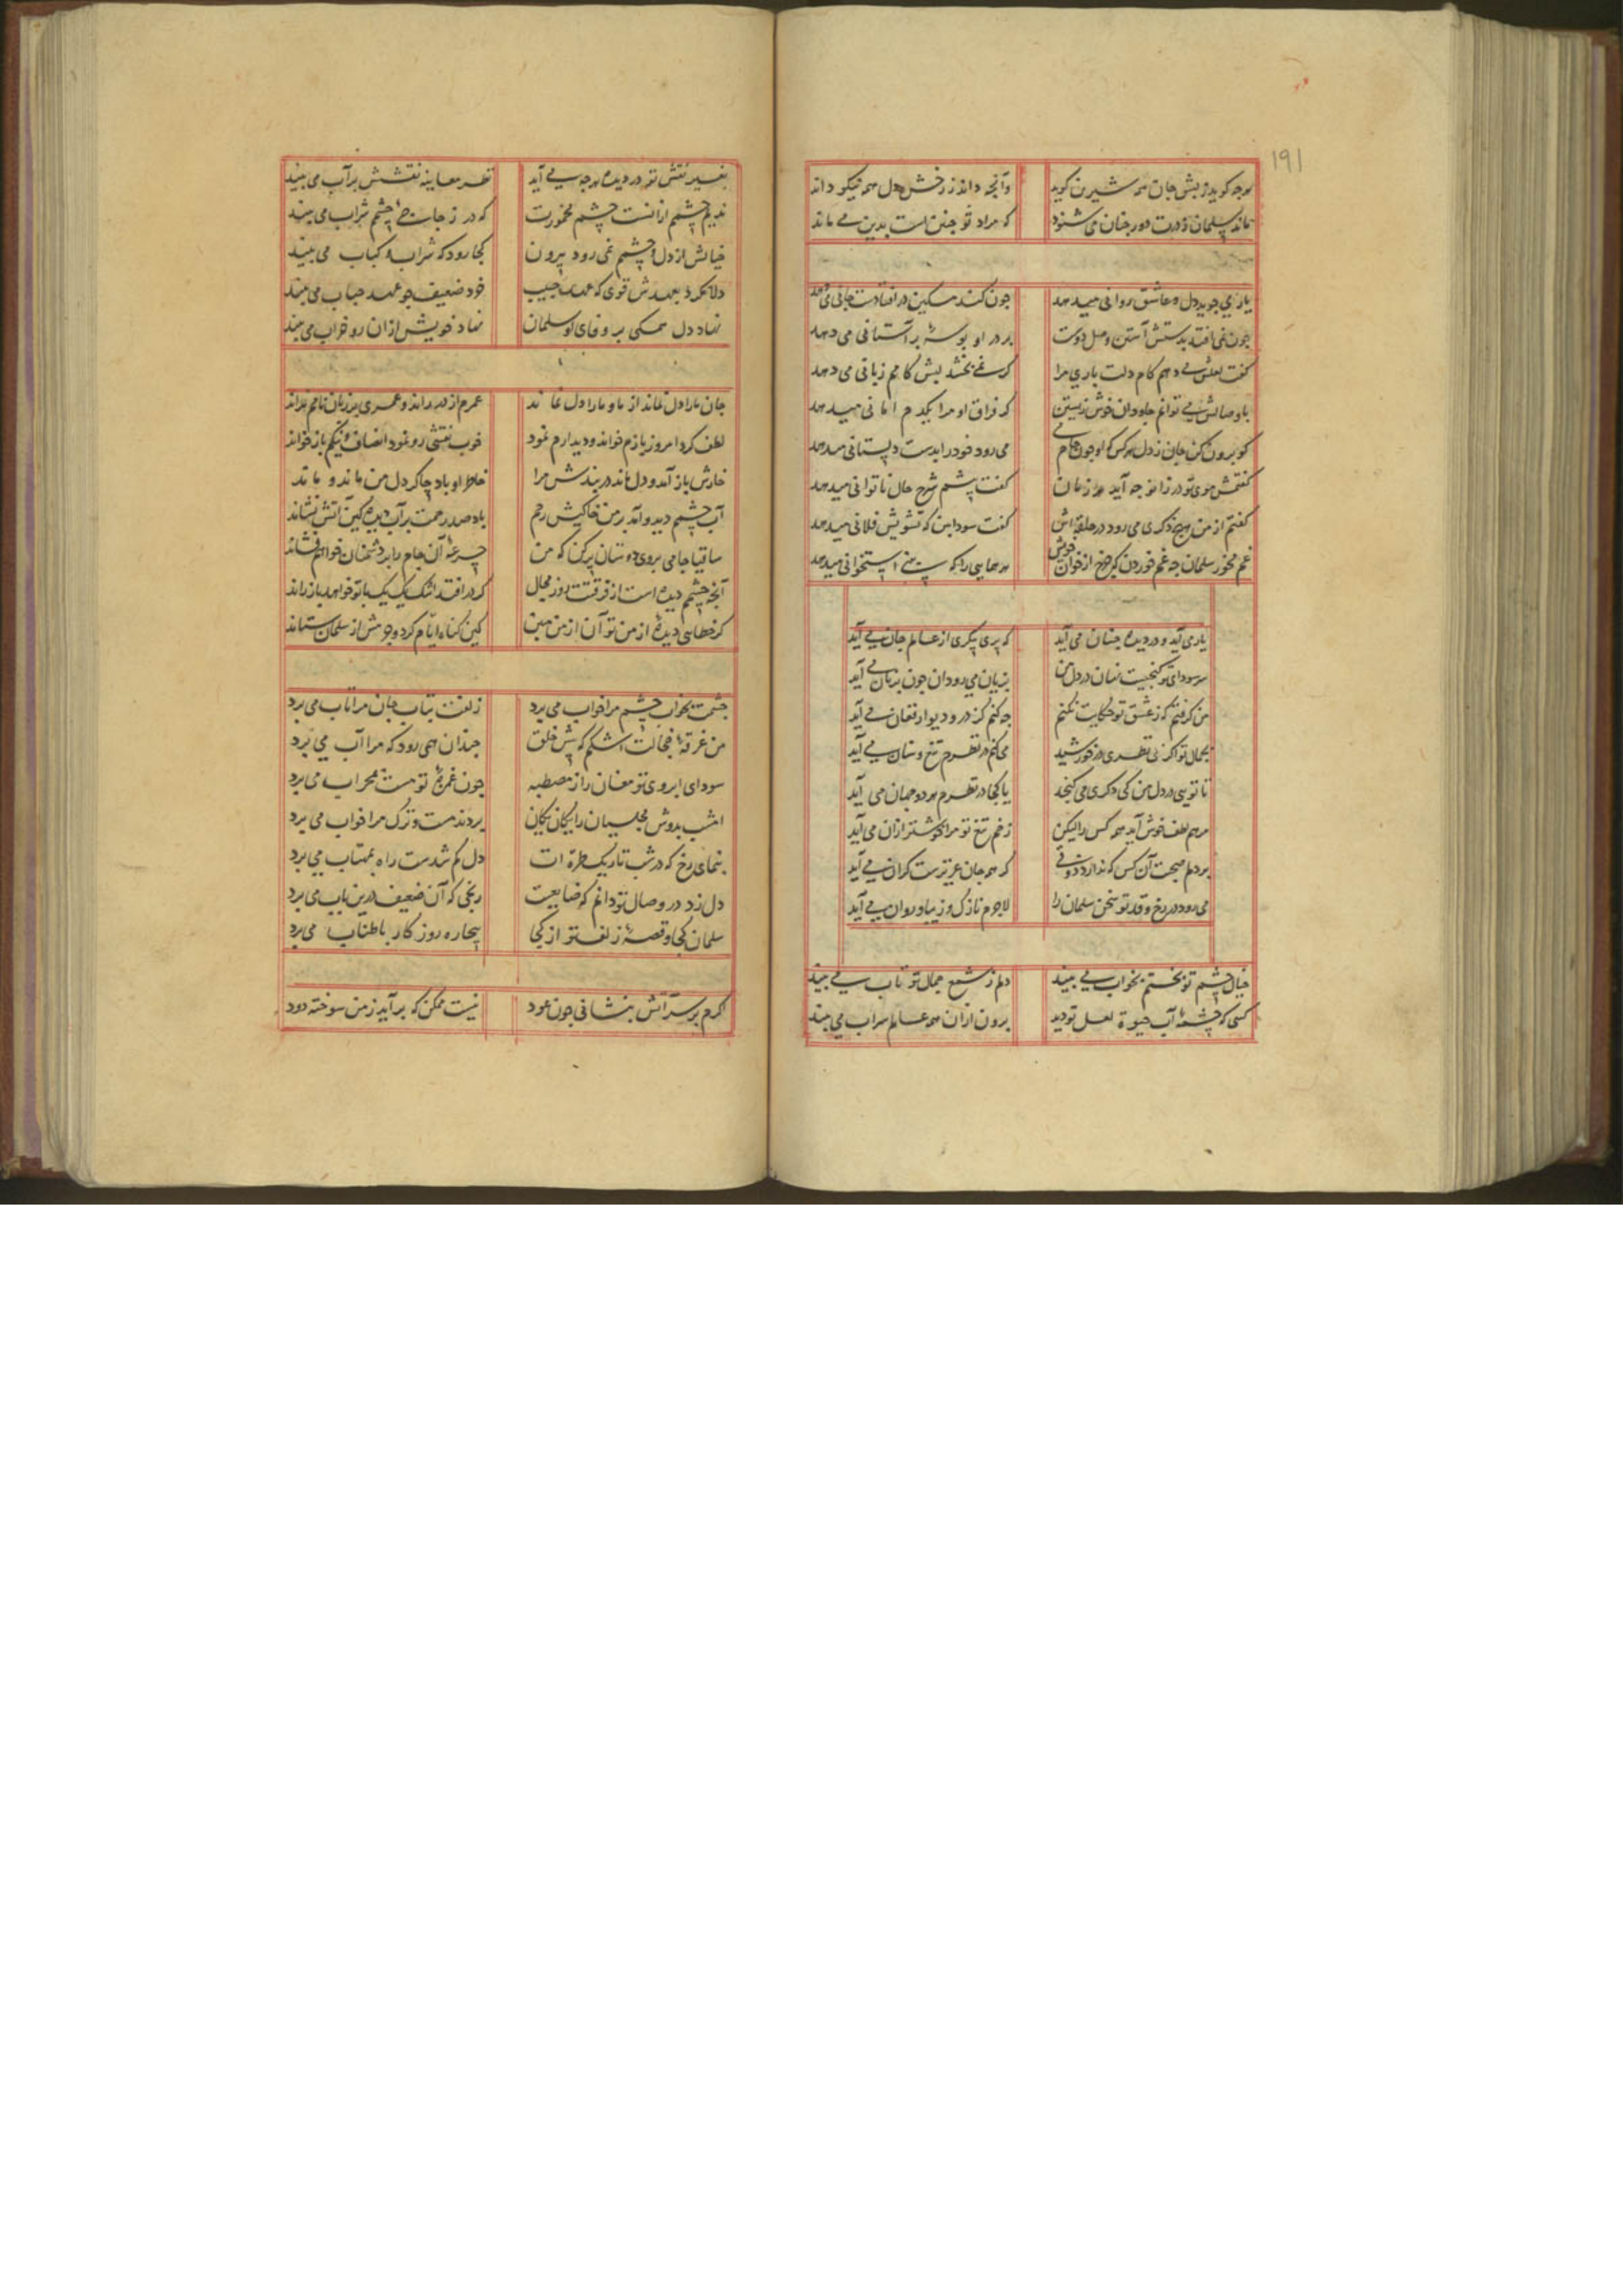 ۱۹۱
هرجه کوید زبش جان همه شیرین کوید وآنجه داند ز رخش دل همه نیکو داند
ماند سلمان ز درت دور جنان می شنود که مراد تو جنین است بدین می ماند
یار می جوید دل و عاشق روانی میدهد جون کند مسکین در افتادست جانی می دهد
جون نمی افتد بدستش آستین وصل دوست بر در او بوسهٔ بر آستانی می دهد
کفت لعلش می دهم کام دلت باری مرا کر نمی بخشد لبش کامم زبانی می دهد
با وصالش می توانم جاودان خوش زیستن کر فراق او مرا یکدم امانی میدهد
کو برون کن جان ز دل هرکس که او جون جام می می رود خود را بدست دلستانی میدهد
کفتمش موی تو در زانو جه آید هر زمان کفت پیشم شرح حال ناتوانی میدهد
کفتم از من هیچ ذکری می رود در حلقه اش کفت سودا بین که تشویش فلانی میدهد
غم مخور سلمان جه غم خوردن که جرخ از خوان خویش هر همایی را که بینی استخوانی میدهد
یار می آید و در دیده جنان می آید که پری پیکری از عالم جان می آید
سر سودای تو کنجیست نهان در دل من بزبان می رود آن جون بزبان می آید
من کرفتم که ز عشق تو حکایت نکنم جه کنم کز در و دیوار فغان می آید
بجمال تو اکر بی نظری در خورشید می کنم در نظرم تیغ و سنان می آید
تا تویی در دل من کی دکری می کنجد یا کجا در نظرم هر دو جهان می آید
مرهم لطف خوش آید همه کس را لیکن زخم تیغ تو مرا خوشتر از آن می آید
بر دلم صحبت آن کس که ندارد ذوقی کر همه جان عزیزست کران می آید
می رود در رخ و قد تو سخن سلمان را لاجرم نازک و زیبا و روان می آید
خیال چشم تو بختم بخواب می بیند دلم ز شمع جمال تو تاب می بیند
کسی که چشمهٔ آب حیوة لعل تو دید برون از آن همه عالم سراب می بیند
بغیر نقش تو در دیده هرجه می آید نظر معاینه نقشش بر آب می بیند
ندیم چشمم از آنست چشم مخمورت که در زجاجهٔ چشمم شراب می بیند
خیالش از دل و چشمم نمی رود بیرون کجا رود که شراب و کباب می بیند
دلا مکرد بعهدش قوی که عهد حبیب خود ضعیف جو عهد حباب می بیند
نهاد دل همکی بر وفای او سلمان نهاد خویش از آن رو خراب می بیند
جان ما را دل نماند از ما و ما را دل نماند عمرم از در راند و عمری بر زبان نامم نراند
لطف کرد امروز بازم خواند و دیدارم نمود خوب نقشی رو نمود انصاف و نیکم باز خواند
خارش باز آمد و دل ماند در بندش مرا خاطر او باد جاکر دل من ماند و ماند
آب چشمم دید و آمد بر من خاکیش رحم باد صد رحمت بر آب دیده کین آتش نشاند
ساقیا جامی بروی دوستان پر کن که من جرعهٔ آن جام را بر دشمنان خواهم فشاند
آنجه چشمم دیده است از فرقتت روز مجال کر در افتد اشک یک یک با تو خواهد باز راند
کر خطایی دیدهٔ از من تو آن از من مبین کین کناه ایام کرد و جرمش از سلمان ستاند
جشمت بخواب چشم مرا خواب می برد زلفت بتاب جان مرا تاب می برد
من غرقهٔ خجالت اشکم که پیش خلق جندان همی رود که مرا آب می برد
سودای ابروی تو مغان را ز مصطبه جون غمزهٔ تو مست بمحراب می برد
امشب بدوش مجلسیان را یکان یکان بردند مست و ترک مرا خواب می برد
بنمای رخ که در شب تاریک طره ات دل کم شدست راه بمهتاب می برد
دل نزد در وصال تو دانم که ضایعست رنجی که آن ضعیف درین باب می برد
سلمان کجا و قصهٔ زلف تو از کجا بیجاره روزکار باطناب می برد
اکرم بر سر آتش بنشانی جون عود نیست ممکن که برآید ز من سوخته دود